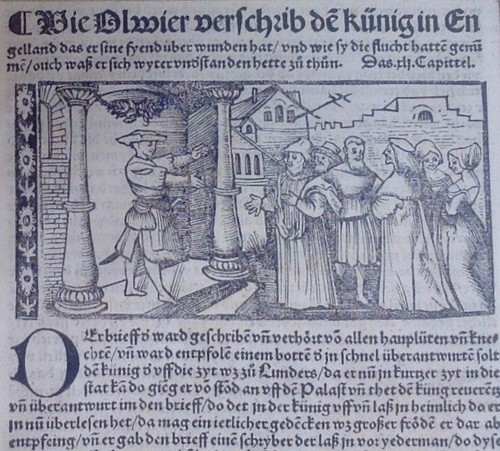 ¶ Wie Olwier verschrib dē künig in En
gelland das er sine fyend über wunden hat / vnd wie sy die flucht hattē genū
mē / ouch waß er sich wyter vnd standen hette zů thůn. Das .xlj. Capittel.
Der brieff ward geschribē vñ verhört vō allen hauplüten vñ kne-
chtē / vñ ward entpfolē einem bottē d' jn schnel überantwurtē solt
dē künig vff die zyt wz zů Lunders / da er nů jn kurtzer zyt in die
stat kā do gieg er vō stōd an vff dē Palast vñ thet dē küng reuerētz
vñ überantwurt im den brieff / do det jn der künig vff vñ laß jn heimlich do er
jn nů überlesen het / da mag ein ietlicher gedēcken wz großer fröde er dar ab
entpfeing / vñ er gab den brieff einē schryber der laß in vor yederman / do dyse